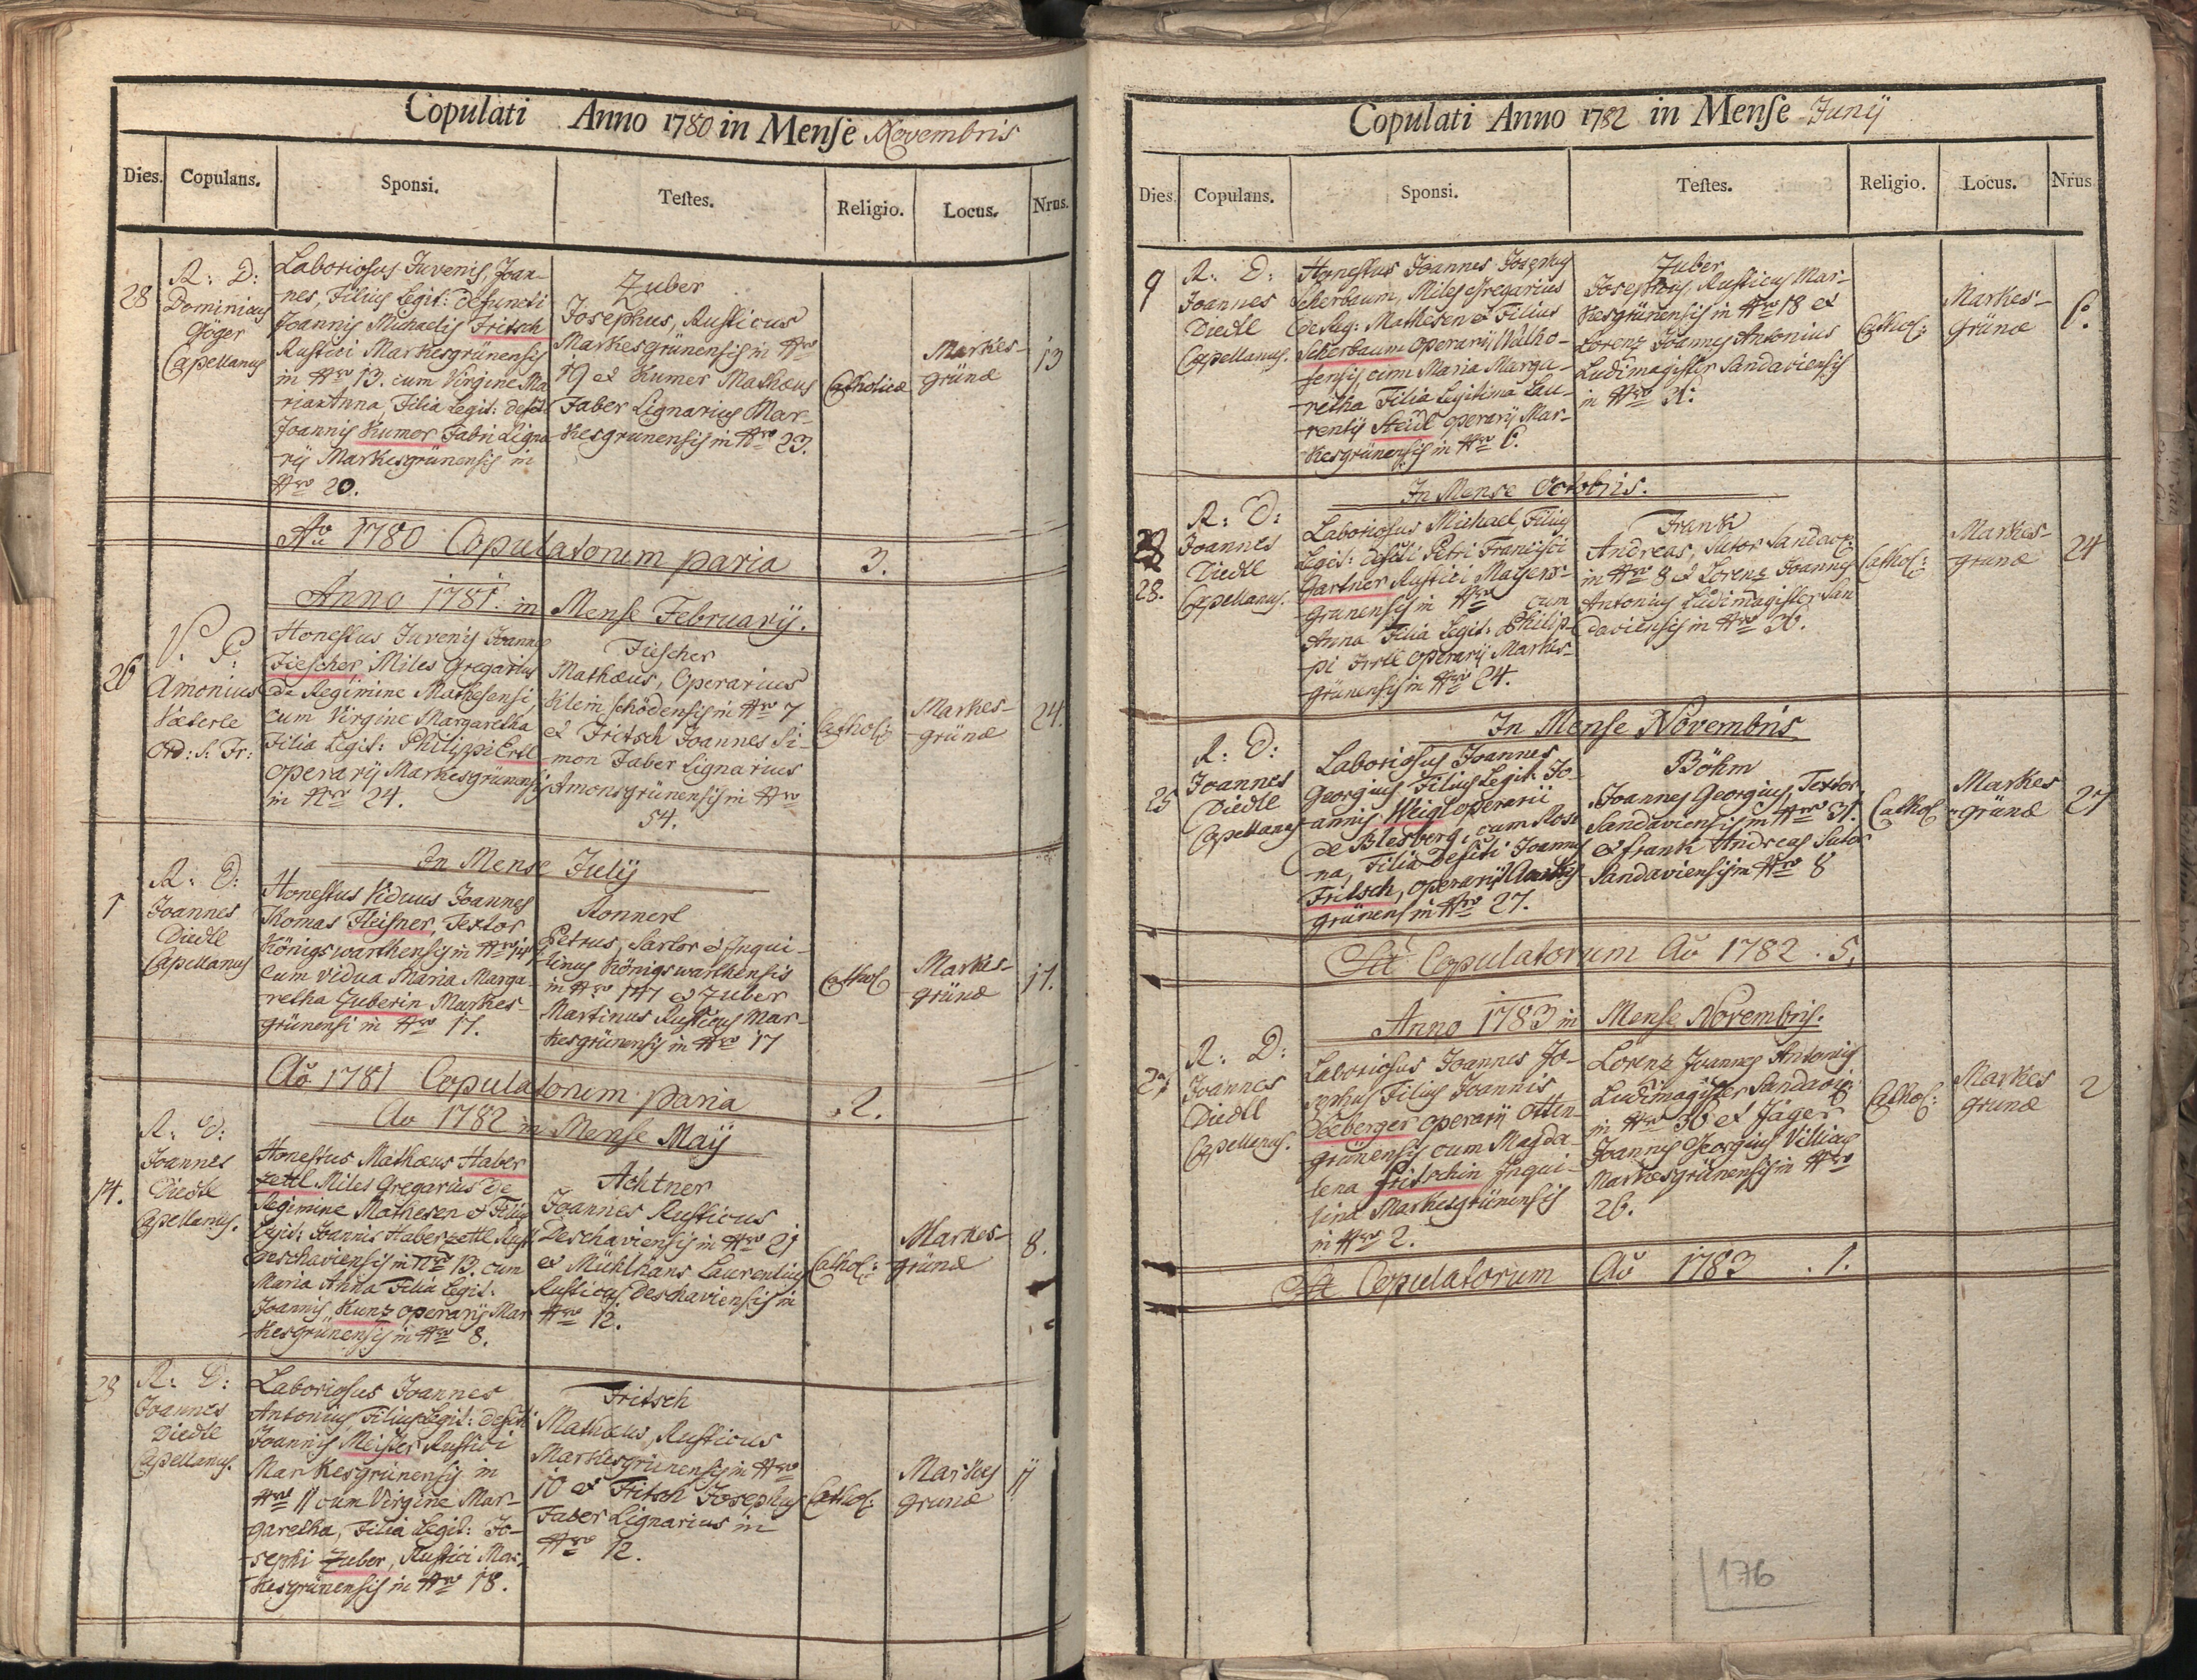 Copulati Anno 1780 in Mense Novembris
Dies. Copulans. Sponsi. Testes. Religio. Locus. Nrus.
28
R: D:
Dominicus
Göger
Capellanus
Laboriosus Juvenis, Joan-
nes, Filius Legit: defuncti
Joannis Michaelis Fritsch
Rustici Markesgrünensis
in Nro 13. cum Virgine Ma
ria Anna Filia Legit: defcti
Joannis Kumer Fabri Ligna
rij Markesgrünensis in
Nro 20.
Zuber
Josephus, Rusticus
Markesgrünensis in Nro
et Kumer Mathæus
Faber Lignarius Mar-
kesgrunensis in Nro 23.
Catholicæ
Markes-
grünæ
13
Ao 1780 Copulatorum paria 3.
Anno 1781. in Mense Februarij.
26
P. P:
Amonius
Ord: S: Fr:
Honestus Juvenis Joannes
Fiescher Miles Gregarius
de Regimine Mathesensi,
cum Virgine Margaretha
Filia Legit: Philippi Ertl
operarij Markesgrünensis
in Nro 24.
Fiescher
Mathæus, Operarius
Kleinschödensis in Nro 7
et Fritsch Joannes Si-
mon Faber Lignarius
Amonsgrünensis in Nro
54.
Cathol:
Markes-
grünæ
24.
In Mense Julij
1
R: D:
Joannes
Diedle
Capellanus
Honestus Viduus Joannes
Thomas Fleisner, Textor
Königswarthensis in Nro 141
cum vidua Maria Marga-
retha Zuberin Markes-
grünensi in Nro 17.
Ronnert
Petrus, Sartor et Inqui-
linus Königswarthensis
in Nro 147 et Zuber
Martinus Rusticus Mar-
kesgrünensis in Nro 17
Cathol
Markes-
grünæ
17.
Ao 1781 Copulatorum paria .2.
Ao 1782 in Mense Maij
14.
R: D:
Joannes
Diedle
Capellanus.
Honestus Mathæus Haber
zettl Miles Gregarius de
Regimine Mathesen et Filius
Legit: Joannis Haberzettl Rust
Deschaviensis in Nro 13. cum
Maria Anna Filia Legit:
Joannis Kunz operarij Mar
kesgrünensis in Nro 8.
Achtner
Joannes Rusticus
Deschaviensis in Nro 21
et Mühlhans Laurentius
Rusticus Deschaviensis in
Nro 12.
Cathol:
Markes-
grünæ
8.
28
R: D:
Joannes
Diedle
Capellanus.
Laboriosus Joannes
Antonius Filius Legit: defcti
Joannis Meister Rustici
Markesgrünensis in
Nro 11 cum Virgine Mar-
garetha, Filia Legit: Jo-
sephi Zuber, Rustici Mar-
kesgrünensis in Nro 18.
Fritsch
Mathæus, Rusticus
Markesgrünensis in Nro
10 et Fritsch Josephus
Faber Lignarius in
Nro 12.
Cathol:
Markes
grunæ
11
Copulati Anno 1782 in Mense Junij
Dies. Copulans. Sponsi. Testes. Religio. Locus. Nrus
9
R: D:
Joannes
Diedle
Capellanus.
Honestus Joannes Josephus
Scherbaum, Miles Gregarius
de Reg: Mathesen et Filius
Scherbaum operarij Watho-
sensis, cum Maria Marga-
retha Filia Legitima Lau-
rentij Steidl operarij Mar-
kesgrünensis in Nro 6.
Zuber
Josephus, Rusticus Mar-
kesgrünensis in Nro 18 et
Lorenz Joannes Antonius
Ludimagister Sandaviensis
in Nro
Cathol:
Markes-
grünæ
6.
In Mense Octobris.
28.
R: D:
Joannes
Diedle
Capellanus.
Laboriosus Michael Filius
Legit: defcti Petri Francisci
Gartner Rustici Mayers-
grunensis in Nro cum
Anna Filia Legit: Philip-
pi Irtl operarij Markes-
grünensis in Nro 24.
Frank
Andreas, Sutor Sandav:
in Nro 8 et Lorenz Joannes
Antonius Ludimagister San
daviensis in Nro 36.
Cathol:
Markes-
grunæ
24
In Mense Novembris
25
R: D:
Joannes
Diedle
Capellanus
Laboriosus Joannes
Georgius Filius Legit: Jo-
annis Weigl operarii
de Blesberg, cum Rosi
na, Filia defcti Joannis
Fritsch, operarij Markes
grünens in Nro 27.
Böhm
Joannes Georgius Textor
Sandaviensis in Nro 31.
et frank Andreas Sutor
Sandaviensis in Nro 8
Cathol
Markes
grünæ
27
Sa Copulatorum Ao 1782 . 5.
Anno 1783 in Mense Novembris.
R: D:
Joannes
Diedle
Capellanus.
Laboriosus Joannes Jo-
sephus Filius Joannis
Seeberger operarij Otten
grünensis cum Magda-
lena Fritschin Inqui-
lina Markesgrünensis
in Nro 2.
Lorenz Joannes Antonius
Ludimagister Sandavi:
in Nro 36 et Jäger
Joannes Georgius Villicus
Markesgrünensis in Nro
26.
Cathol:
Markes
grunæ
2
Sa Copulatorum Ao 1783 . 1.
176